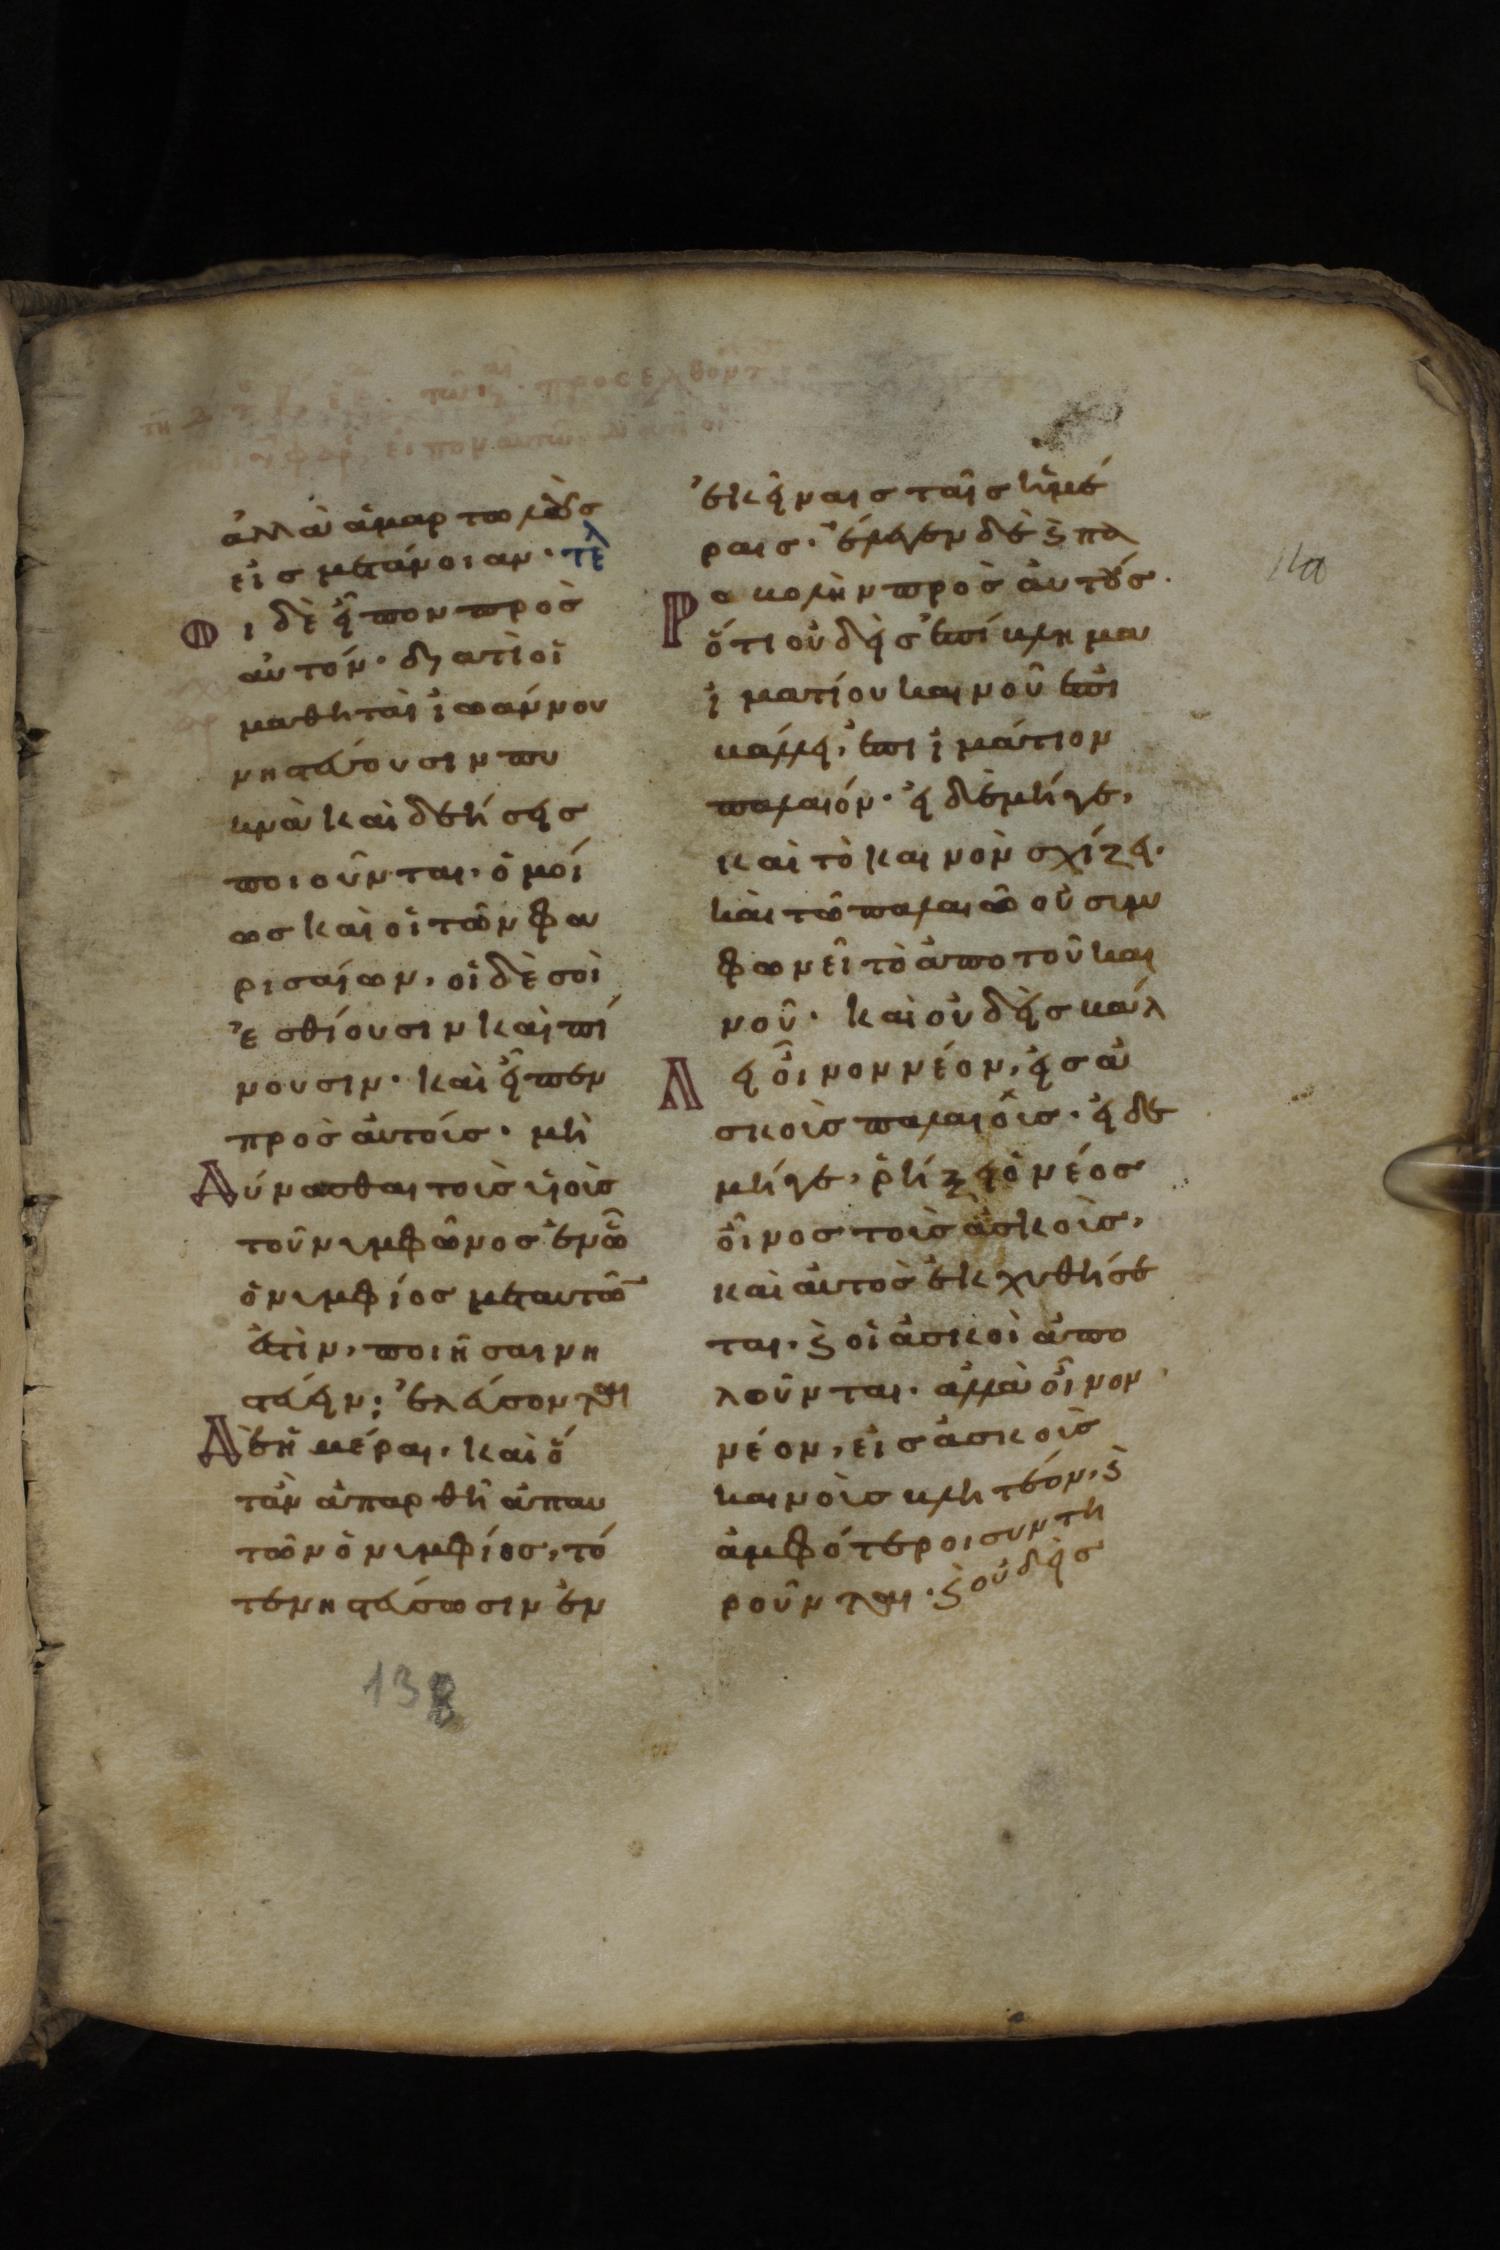 προσελθοντ
ειπον αυτω
ἀλλὰ ἁμαρτωλοὺσ
εἰσ μετάνοιαν· τελ
Οι δὲ εἶπον πρὸσ
αὐτόν· διατὶ οἱ
μαθηταὶ ἰωάννου
νηστεύουσιν πυ
κνὰ καὶ δεήσεισ
ποιοῦνται, ὁμοί
ωσ καὶ οἱ τῶν φα
ρισαίων, οἱ δὲ σοὶ
ἐσθίουσιν καὶ πί
νουσιν· καὶ εἶπεν
πρὸσ αὐτούσ· μὴ
Δύνασθαι τοὺσ υἱοὺσ
τοῦ νυμφῶνοσ ἐν ὧ
ὁ νυμφίοσ μεταυτῶν
ἐστὶν, ποιῆσαι νη
στεύειν; ἐλεύσονται
Δὲ ἡμέραι, καὶ ὅ
τὰν ἀπαρθῆ ἀπαυ
τῶν ὁ νυμφίοσ, τό
τε νηστεύσωσιν ἐν
ἐκείναισ ταῖσ ἡμέ
ραισ· ἔλεγεν δὲ ϗ πα
Ραβολὴν πρὸσ αὐτούσ·
ὅτι οὐδεὶσ ἐπίβλημα
ἱματίου καινοῦ ἐπι
βάλλει, ἐπι ἱμάτιον
παλαιόν· εἰ δὲ μήγε,
καὶ τὸ καινὸν σχίζει·
καὶ τῶ παλαιῶ οὐ συμ
φωνεῖ τὸ ἀπο τοῦ και
νοῦ· καὶ οὐδεὶσ βάλ
Λει οἶνον νέον, εἰσ ἀ
σκοὺσ παλαιοὺσ· εἰ δὲ
μήγε, ῥήξει ὁ νέοσ
οἶνοσ τοὺσ ἀσκοὺσ,
καὶ αὐτὸσ ἐκχυθήσε
ται, ϗ οἱ ἀσκοὶ ἀπο
λοῦνται· ἀλλὰ οἶνον
νέον, εἰσ ἀσκοὺσ
καινοὺσ βλητέον, ϗ
ἀμφότεροι συντη
ροῦνται· ϗ οὐδεὶσ
138